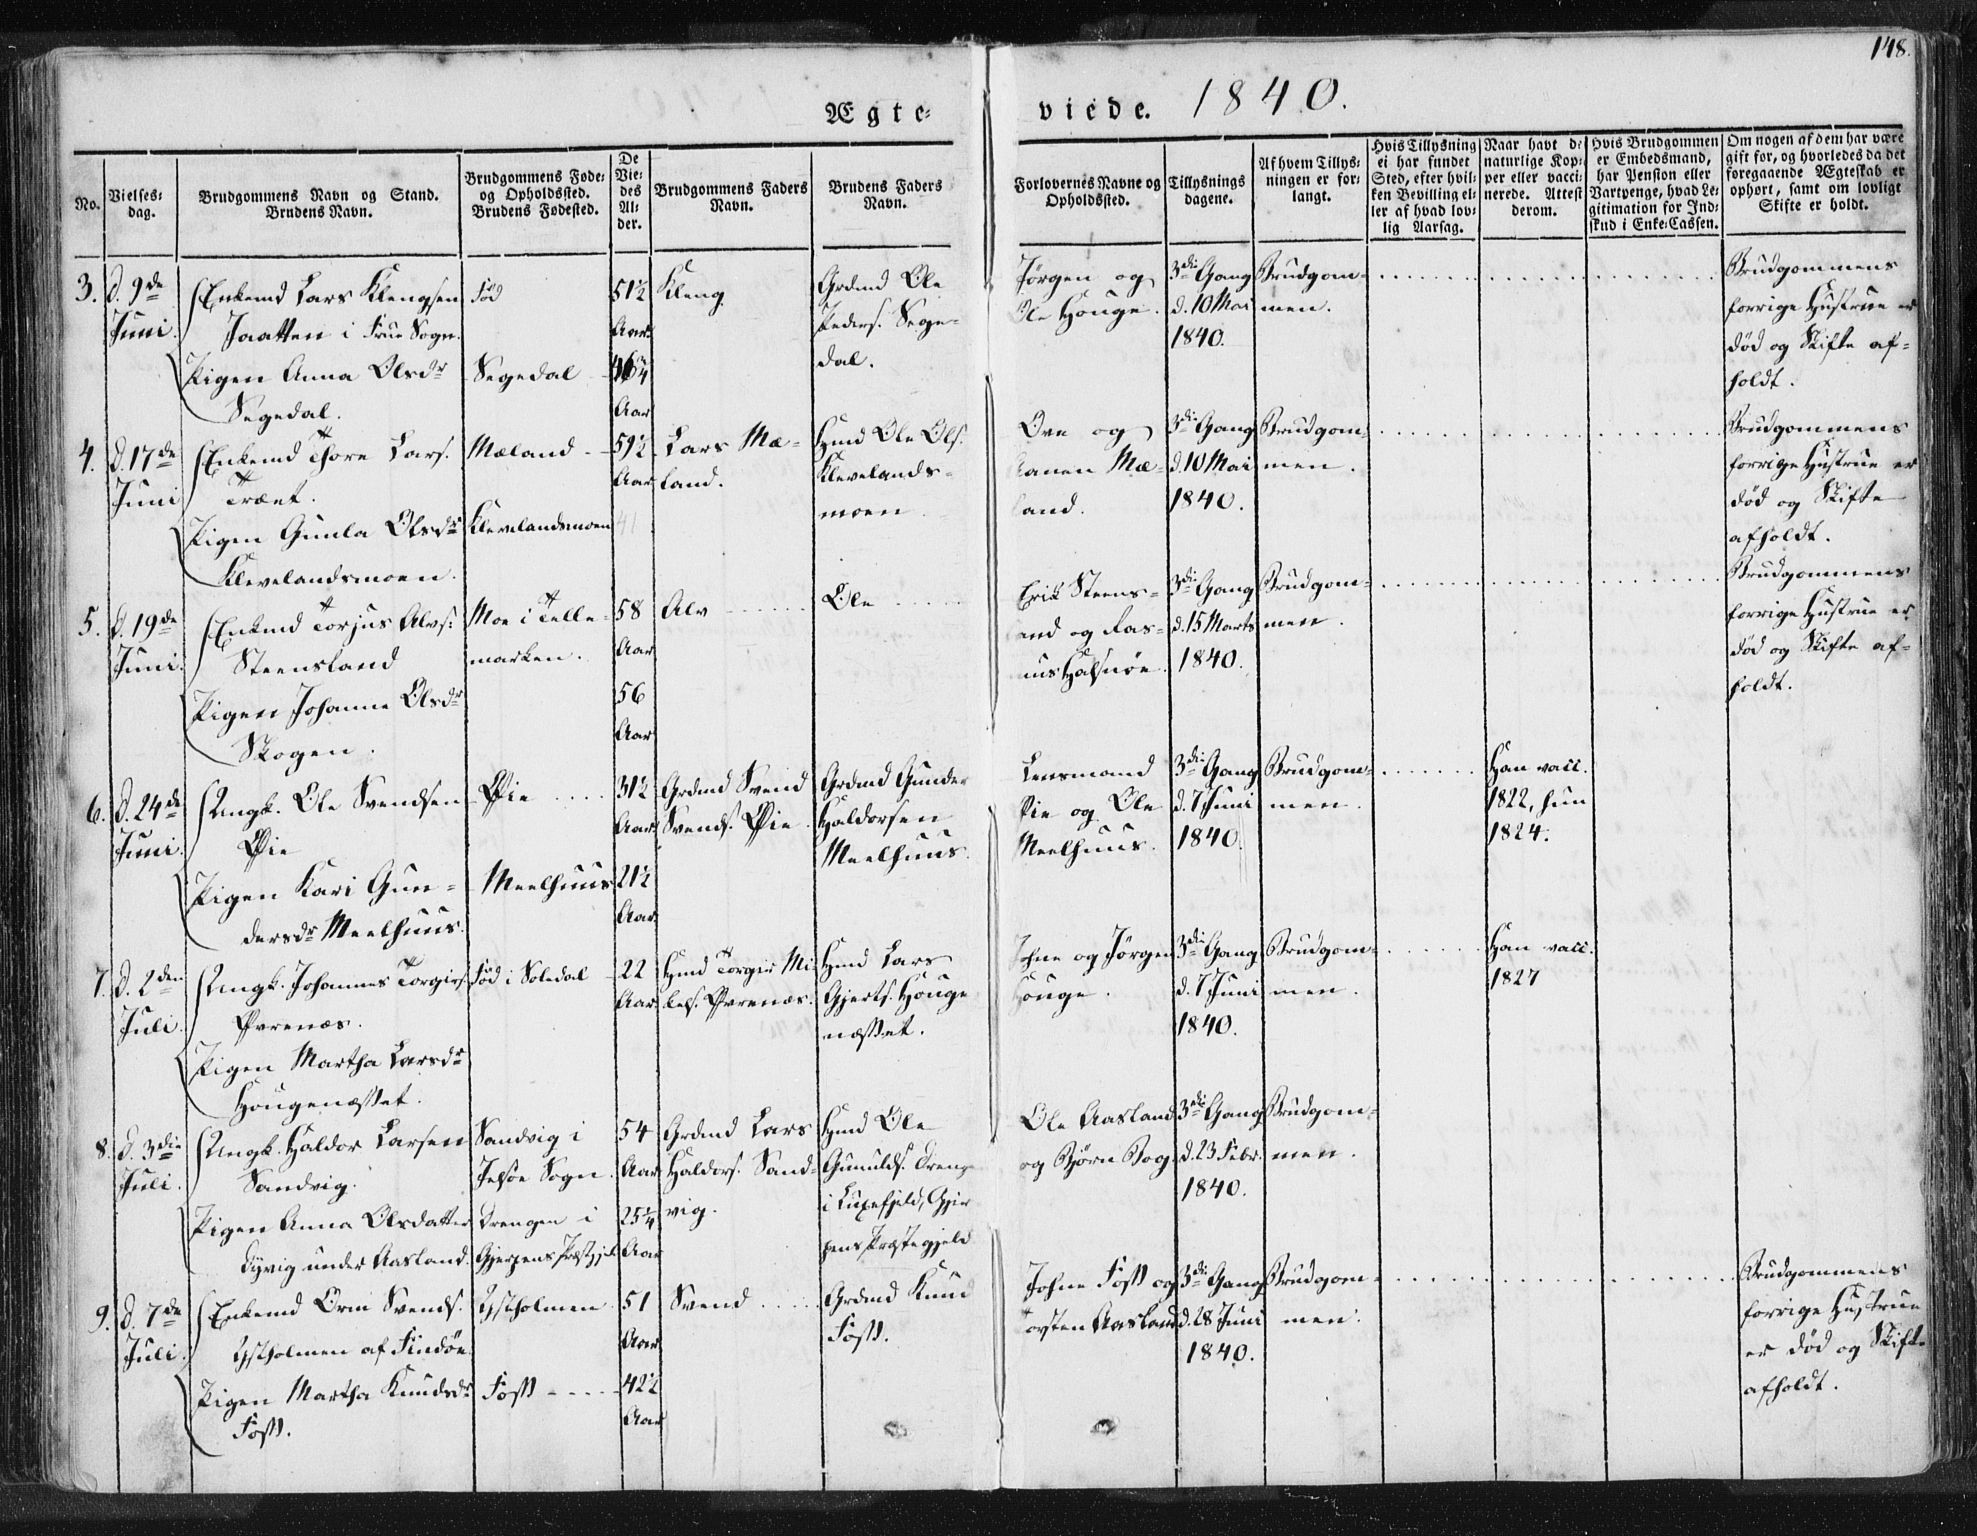 148.
Ægte-
viede. 1840.
No.
Vielses-
dag.
Brudgommens Navn og Stand.
Brudens Navn.
Brudgommens Føde-
og Opholdssted.
Brudens Fødested.
De
Vie-
des
Al-
der.
Brudgommens Faders
Navn.
Brudens Faders
Navn.
Forlovernes Navne og
Opholdssted.
Tillysnings
dagene.
Af hvem Tillys-
ningen er for-
langt.
Hvis Tillysning
ei har fundet
Sted, efter hvil-
ken Bevilling el-
ler af hvad lov-
lig Aarsag.
Naar havt de
naturlige Kop-
per eller vacci-
nerede. Attest
derom.
Hvis Brudgommen
er Embedsmand,
har Pension eller
Vartpenge, hvad Le-
gitimation for Ind-
skud i Enke-Cassen.
Om nogen af dem har være
gift før, og hvorledes da det
foregaaende Ægteskab er
ophørt, samt om lovligt
Skifte er holdt.
3.
d. 9de
Juni.
Enkemd Lars Klengsen
Jaatten i Frue Sogn.
Pigen Anna Olsdr
Segedal.
Fød
Segedal
51½
Aar.
Aar
Kleng
Grdmd Ole
Peders. Sege-
dal.
Jørgen og
Ole Houge.
3die Gang
d. 10 Mai
1840.
Brudgom-
men.
Brudgommens
forrige Hustrue er
død og Skifte af-
holdt.
4.
d. 17de
Juni
Enkemd Thore Lars.
Træet.
Pigen Gunla Olsdr
Klevelandsmoen.
Mæland
Klevelandsmoen
59½
Aar
41
Lars Mæ-
land.
Hmd Ole Ols.
Klevelands-
moen
Ove og
Mæ-
land.
3die Gang
d. 10 Mai
1840.
Brudgom-
men.
Brudgommens
forrige Hustrue er
død og Skifte
afholdt.
5.
d. 19de
Juni.
Enkemd Torjus Alvs.
Steensland
Pigen Johanne Olsdr
Skogen.
Moe i Telle-
marken.
58
Aar
56
Aar
Alv
Ole
Erik Steens-
land og Ras-
mus Halsnøe.
3die Gang
d. 15 Marts
1840.
Brudgom-
men.
Brudgommens
forrige Hustrue er
død og Skifte af-
holdt.
6.
d. 24de
Juni.
Ungk. Ole Svendsen
Øie
Pigen Kari Gun-
dersdr Meelhuus.
Øie
Meelhuus
31½
Aar.
21½
Aar.
Grdmd Svend
Svends. Øie.
Grdmd Gunder
Haldorsen
Meelhuus.
Lensmand
Øie og Ole
Meelhuus.
3die Gang
d. 7 Juni
1840.
Brudgom-
men.
Han vacc.
1822, hun
1824.
7.
d. 2den
Juli.
Ungk. Johannes Torgiers.
Øvrenæs.
Pigen Martha Larsdr
Hougenæsset.
Fød i Soledal
22
Aar.
Hmd Torgier Mi-
kels. Øvrenæs.
Hmd Lars
Gjerts. Houge
næsset.
Johne og Jørgen
Houge.
3die Gang
d. 7 Juni
1840.
Brudgom-
men.
Han vacc.
1827
8.
d. 3die
Juli.
Ungk. Haldor Larsen
Sandvig.
Pigen Anna Olsdatter
under Aasland.
Sandvig i
Jelsøe Sogn.
Drengen i
Gjerpens Præstgjeld
54
Aar
25¼
Aar
Grdmd Lars
Haldors. Sand-
vig.
Hmd Ole
Gunulds. Dreng
i Luxefjeld, Gjer
pens Præstegjeld
Ole Aasland
og Bjørn Bog.
3die Gang
d. 23 Febr.
1840.
Brudgom-
men.
9.
d. 7de
Juli.
Enkemd Orm Svends.
Ystholmen af Findøe.
Pigen Martha Knudsdr
Foss.
Ystholmen
Foss
51
Aar
42½
Aar
Svend
Grdmd Knud
Foss.
Johne Foss og
Torsten Aasland
3die Gang
d. 28 Juni
1840.
Brudgom-
men.
Brudgommens
forrige Hustrue
er død og Skifte
afholdt.